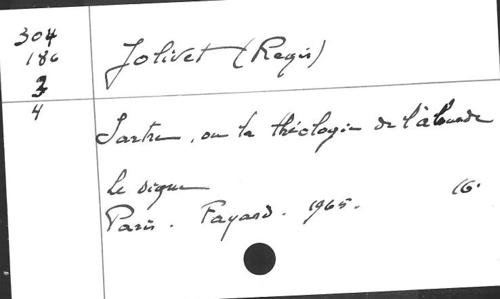 304
186
3
4
Jolivet (Regis)
Sartre, ou la théologie de l'absurde
Le signe
Paris. Fayard. 1965. 16.